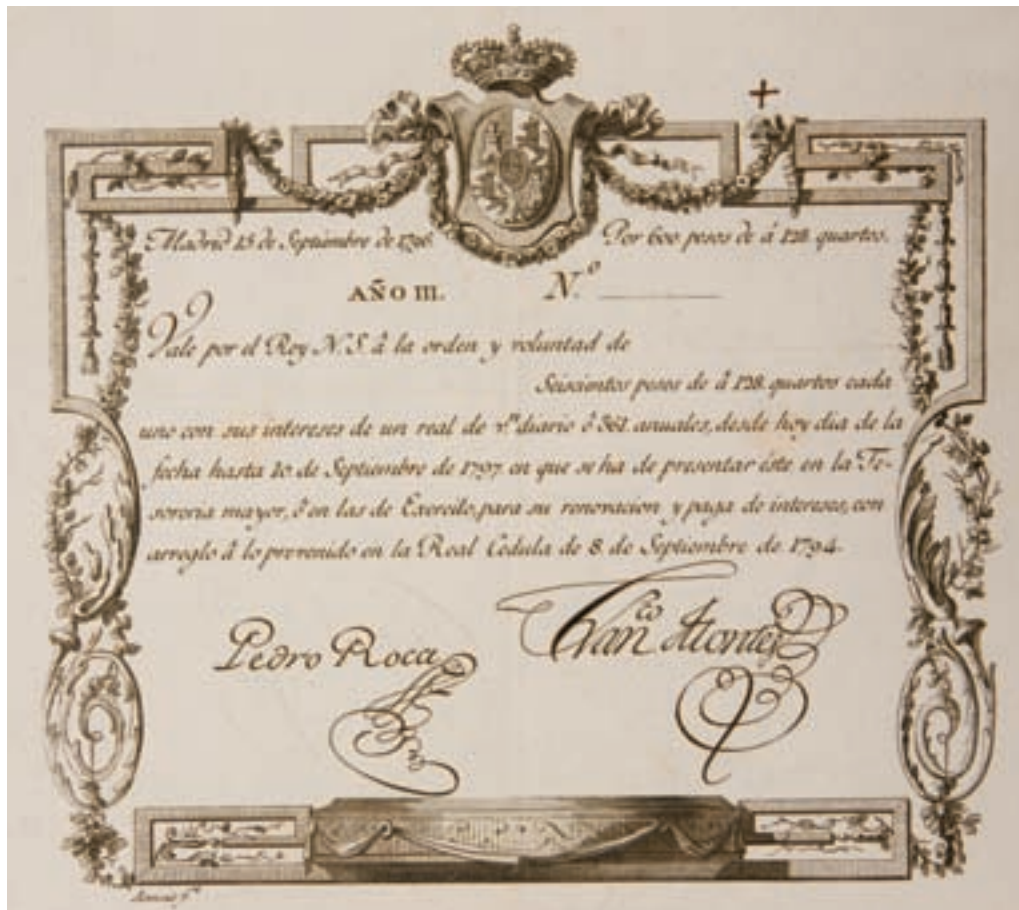 Madrid 15 de Septiembre de 1796. Por 600 pesos de á 128. quartos.
AÑO III. N.º
Vale por el Rey N. S. â la orden y voluntad de
Seiscientos pesos de â 128. quartos cada
uno con sus intereses de un real de v.n diario ô 361 anuales, desde hoy dia de la
fecha hasta 10 de Septiembre de 1797 en que se ha de presentar éste en la Te-
sorería mayor, ô en las de Exercito, para su renovacion y paga de intereses, con
arreglo â lo prevenido en la Real Cedula de 8. de Septiembre de 1794.
Pedro Roca Fran.co Montes